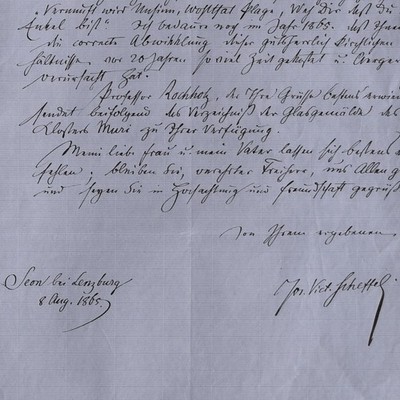 "Vernunft wird Unsinn, Wohlthat Plage, Weh Dir daß Du
Enkel bist" Ich bedaure noch im Jahr 1865. daß Ihnen
die correcte Abwicklung dieser gutsherrlich kirchlichen
hältnisse vor 20 Jahren so viel Zeit gekostet u. Aerger
verursacht hat.
Professor Rochholz, der Ihre Grüsse bestens erwie
sendet beifolgend das Verzeichniß der Glasgemälde des
Klosters Muri zu Ihrer Verfügung.
Meine liebe Frau u. mein Vater lassen sich bestens
fehlen. bleiben Sie, verehrter Freiherr, uns Allen
und seyen Sie in Hochachtung und Freundschaft gegrüß
von Ihrem ergebenen
Seon bei Lenzburg
8 Aug. 1865.
Jos. Vict. Scheffel